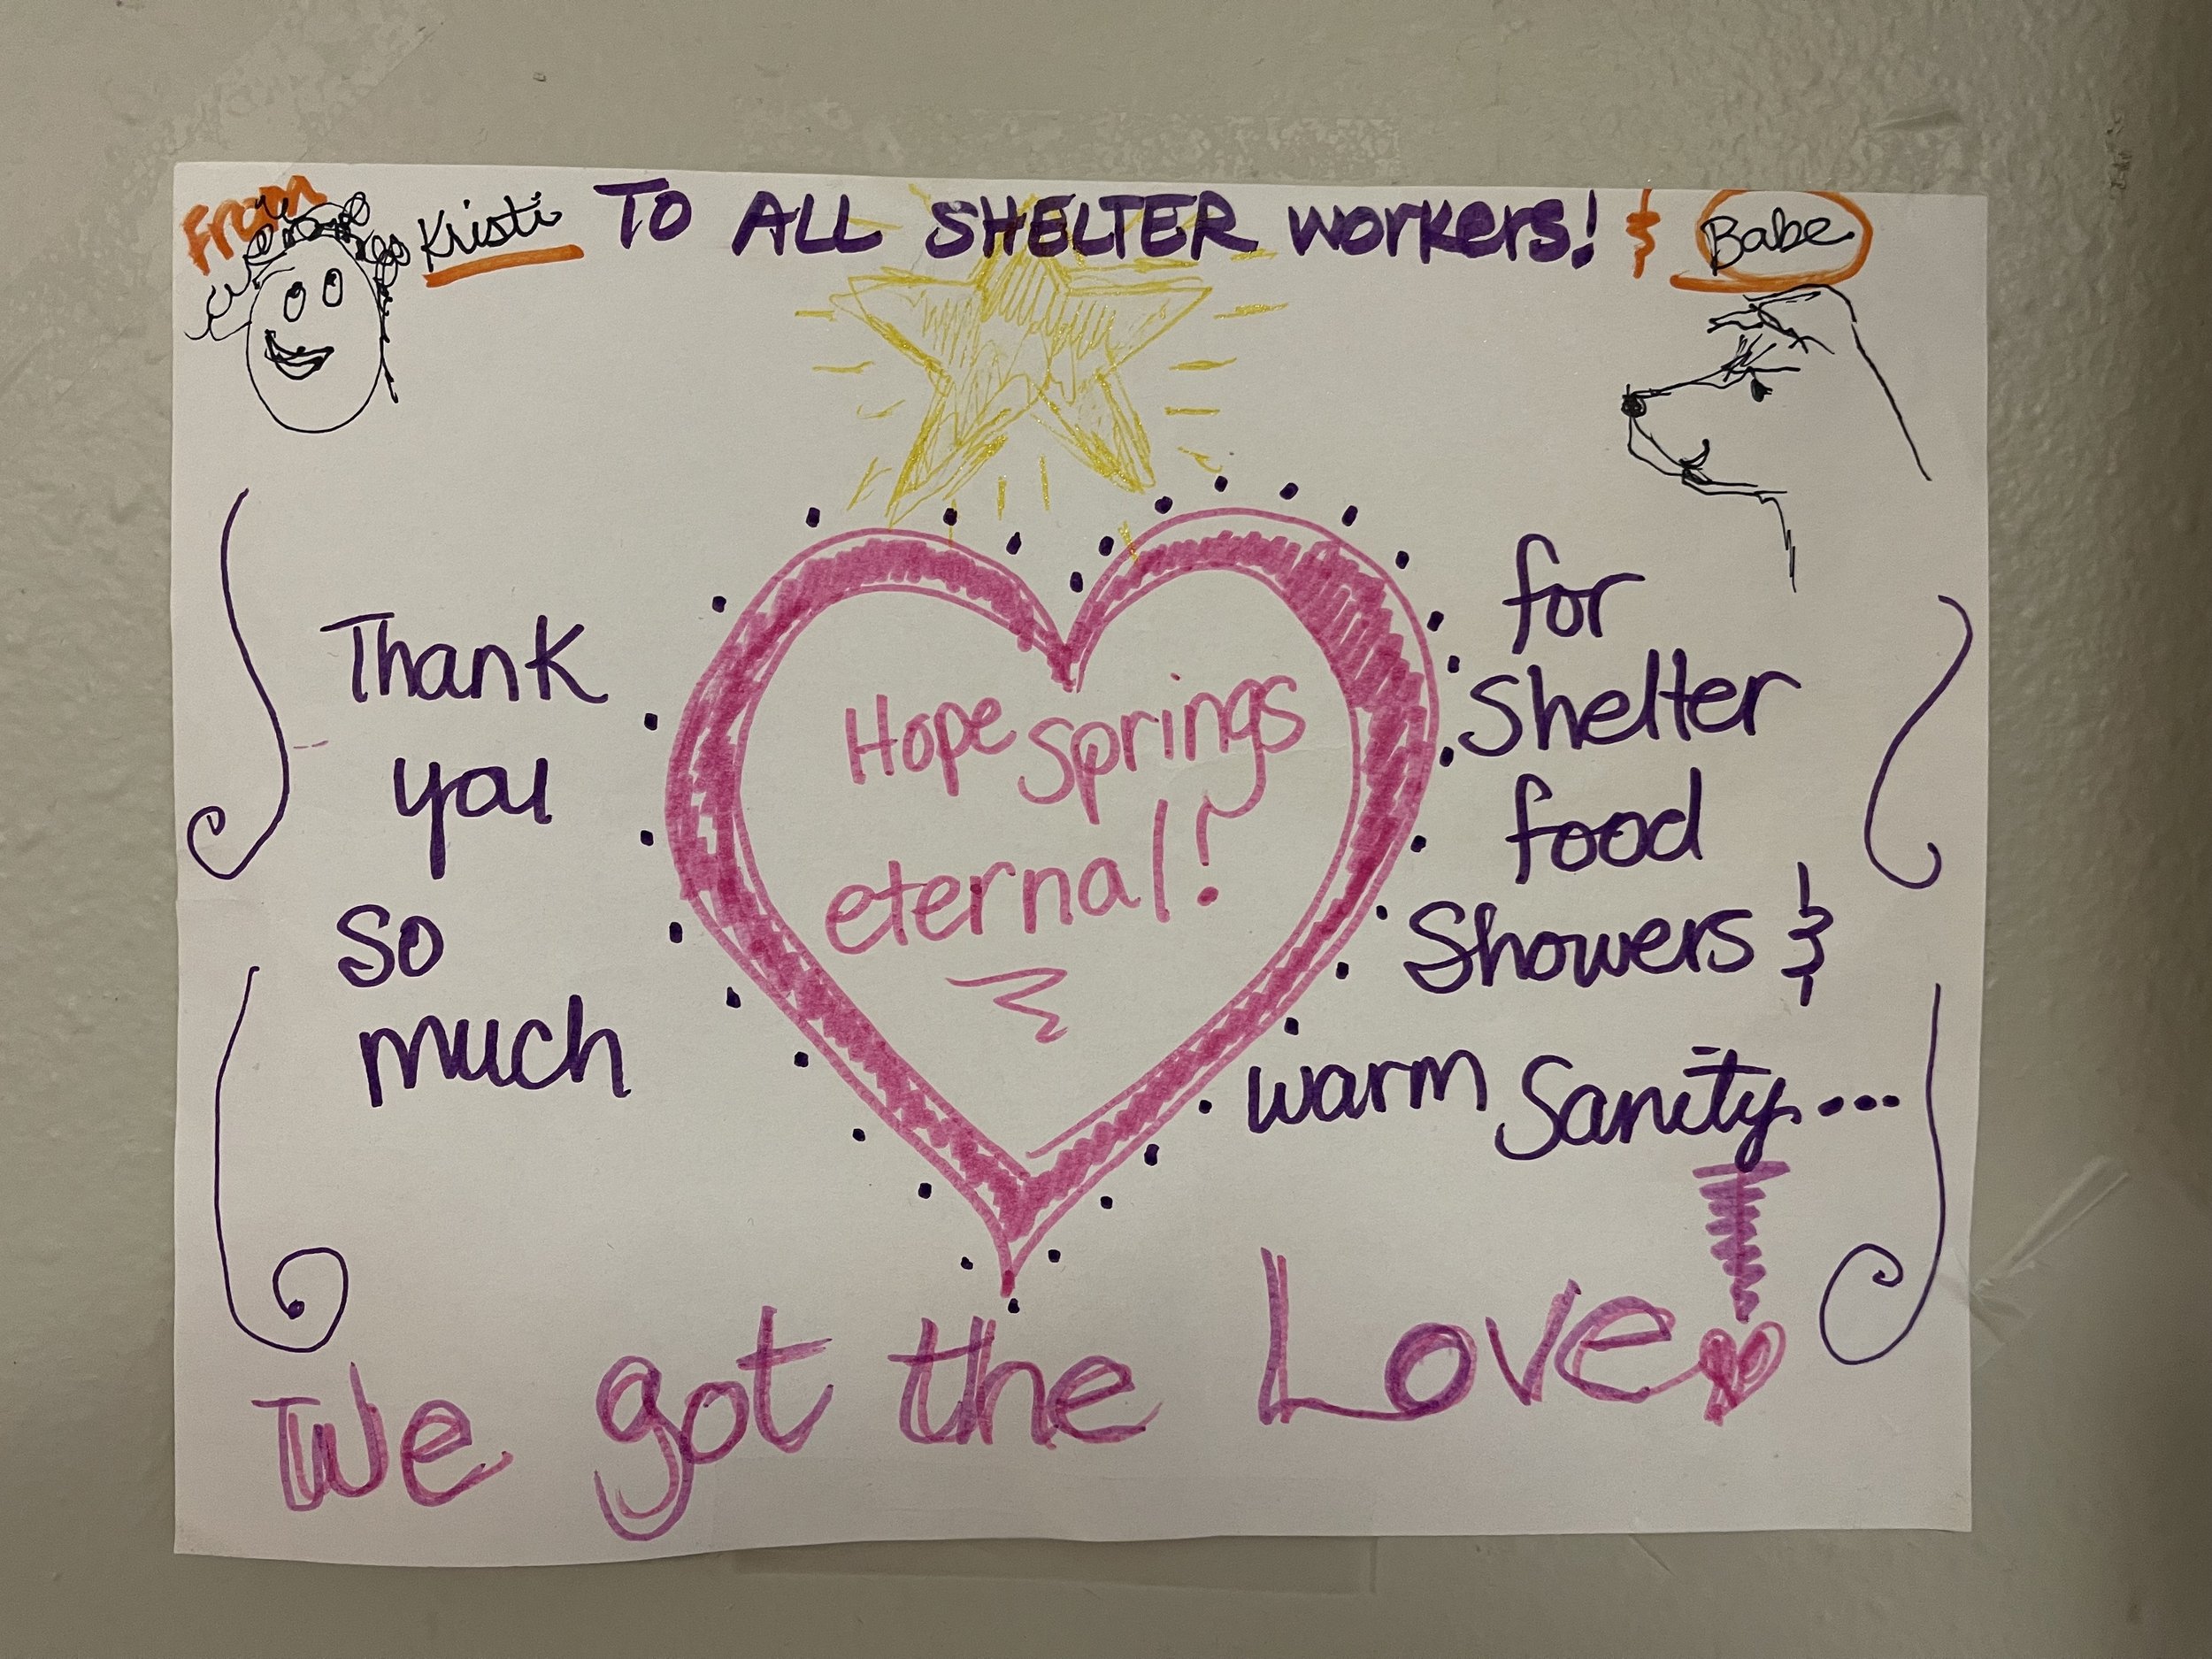 From Kristi TO ALL SHELTER workers! & Babe
Thank
you
so
much
Hope springs
eternal!
for
Shelter
food
Showers &
warm Sanity....
We got the Love!